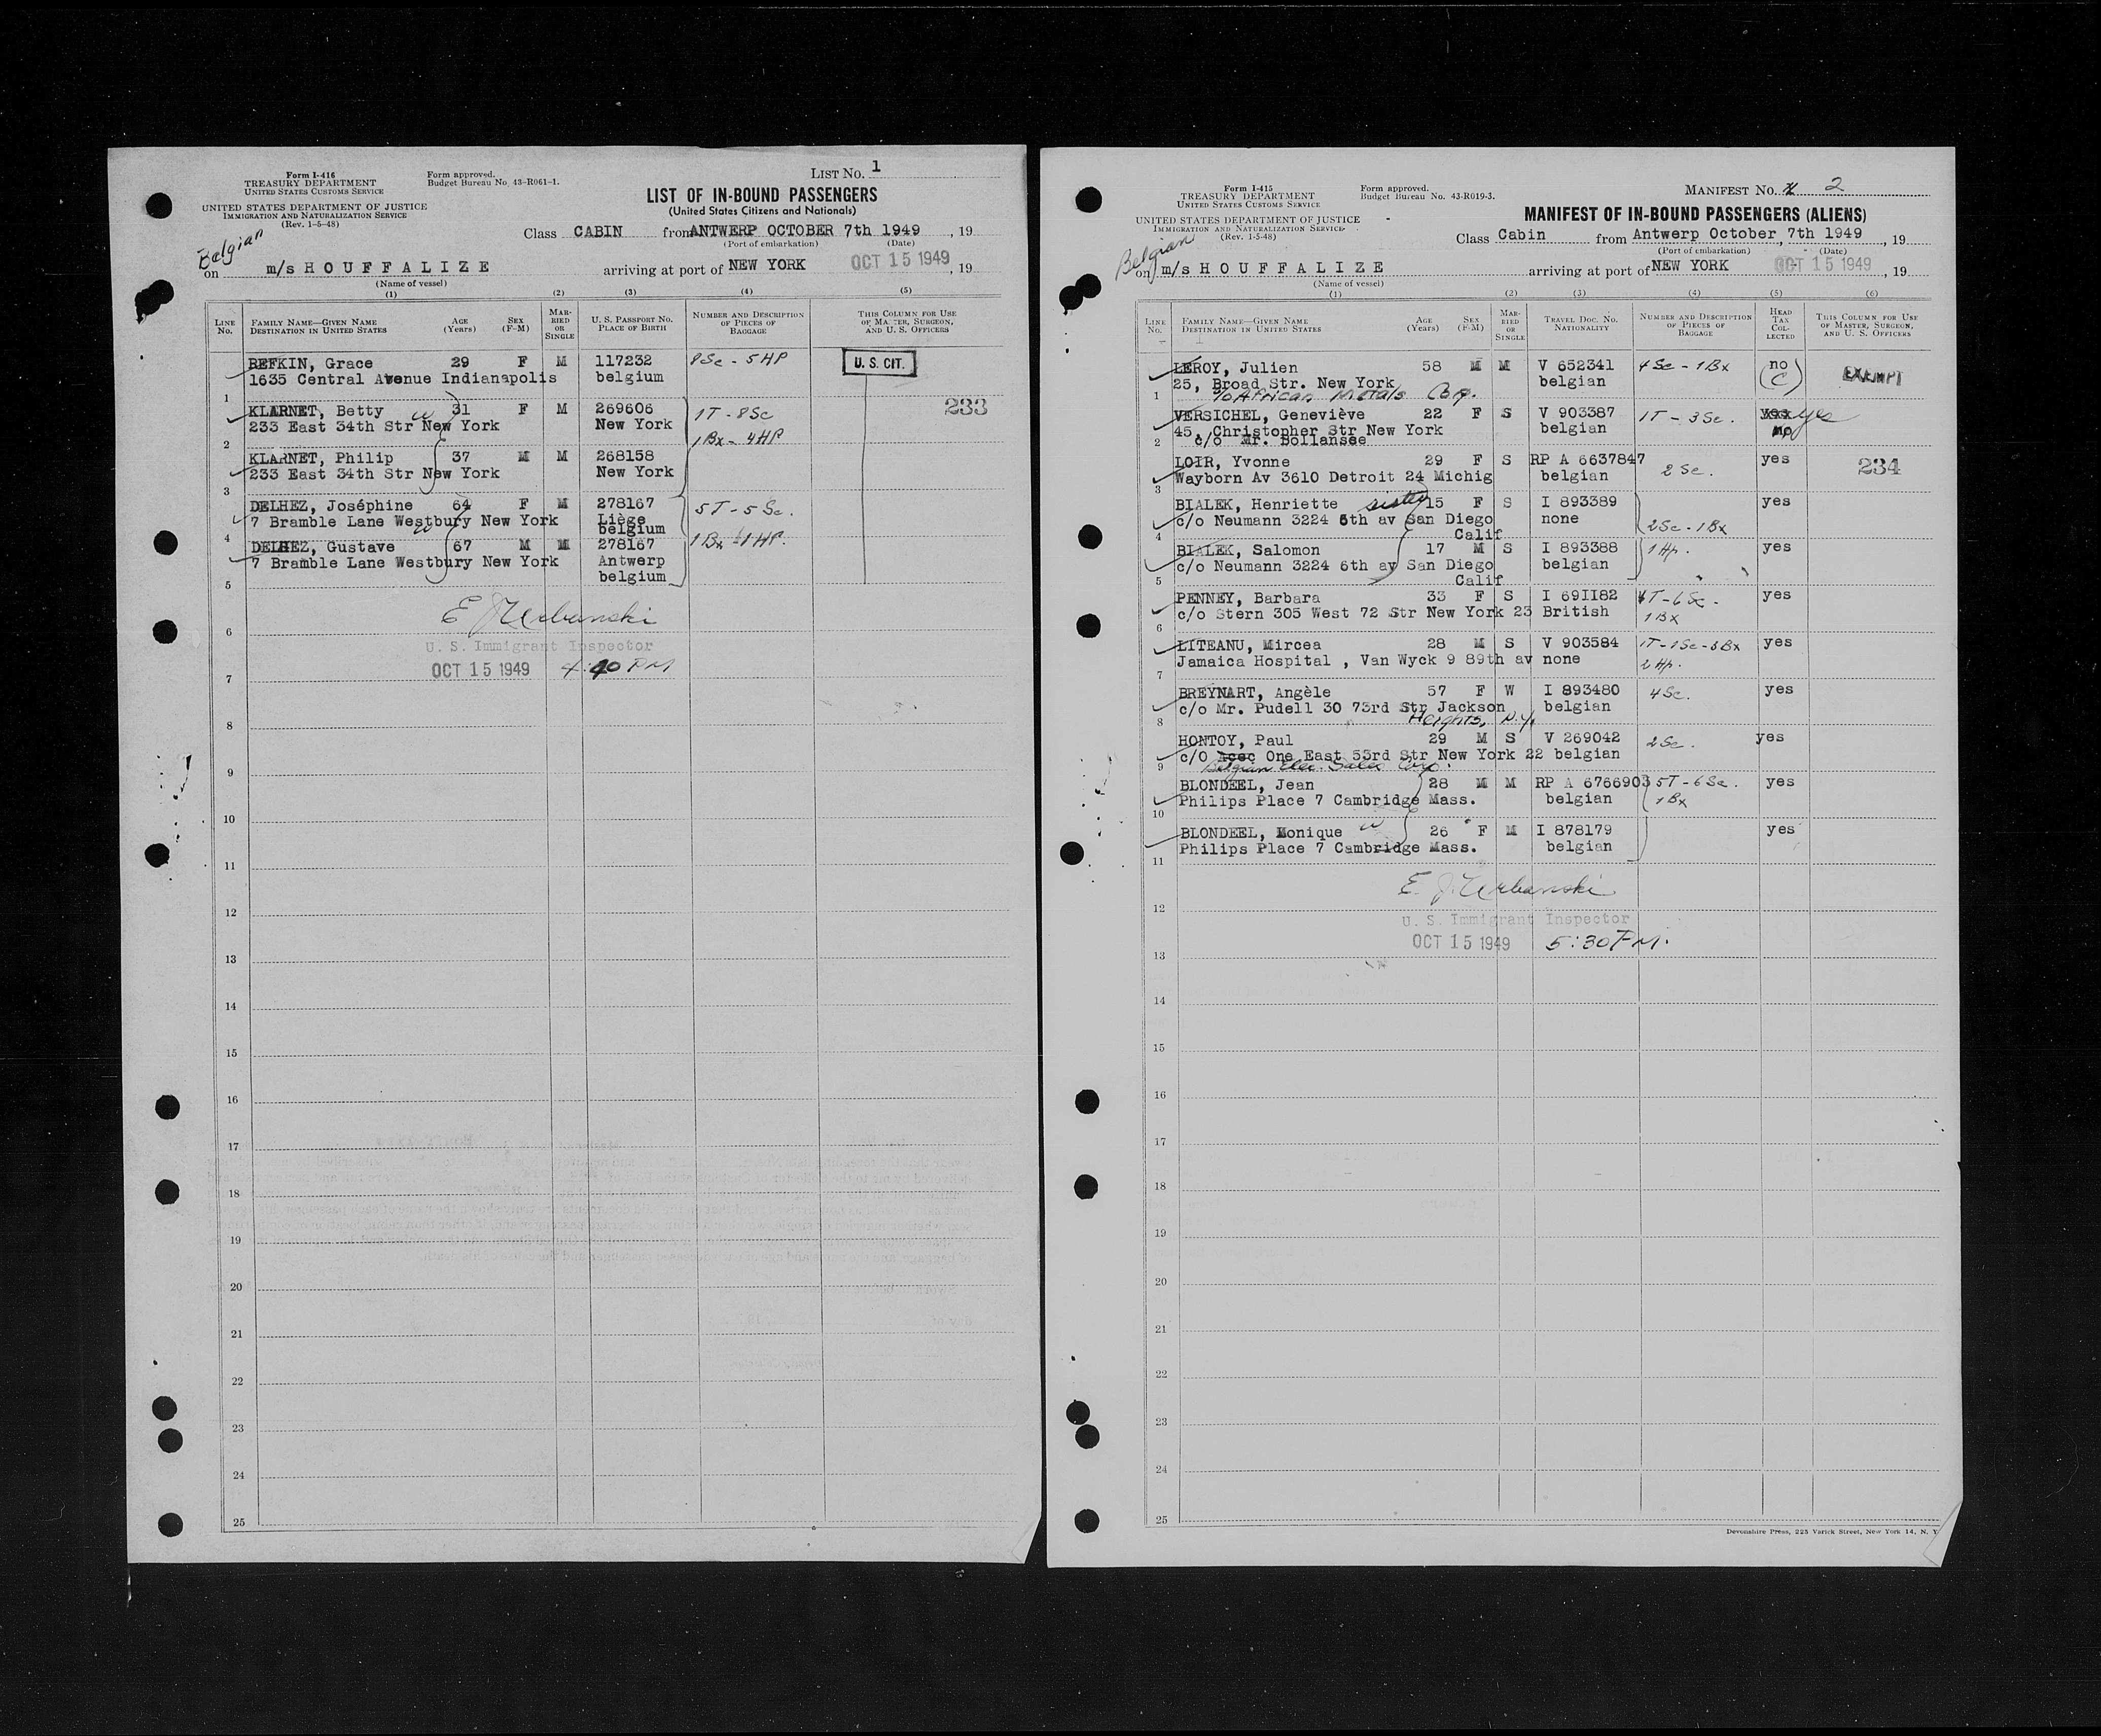 Form I-416
TREASURY DEPARTMENT
UNITED STATES CUSTOMS SERVICE
Form approved.
Budget Bureau No. 43-R061-1.
LIST No. 1
UNITED STATES DEPARTMENT OF JUSTICE
IMMIGRATION AND NATURALIZATION SERVICE
(Rev. 1-5-48)
LIST OF IN-BOUND PASSENGERS
(United States Citizens and Nationals)
Class CABIN from ANTWERP OCTOBER 7th 1949, 19
(Port of embarkation) (Date)
Belgian
on m/s HOUFFALIZE arriving at port of NEW YORK OCT 15 1949, 19
(Name of vessel)
(1) (2) (3) (4) (5)
LINE No. FAMILY NAME—GIVEN NAME DESTINATION IN UNITED STATES AGE (Years) SEX (F-M) MARRIED OR SINGLE U. S. PASSPORT No. PLACE OF BIRTH NUMBER AND DESCRIPTION OF PIECES OF BAGGAGE THIS COLUMN FOR USE OF MASTER, SURGEON, AND U. S. OFFICERS
REFKIN, Grace 29 F M 117232 8Sc - 5HP U. S. CIT.
1635 Central Avenue Indianapolis belgium
1
KLARNET, Betty w 31 F M 269606 1T - 8Sc 233
233 East 34th Str New York New York
2 1Bx - 4HP
KLARNET, Philip 37 M M 268158
233 East 34th Str New York New York
3
DELHEZ, Joséphine 64 F M 278167 5T - 5Sc.
7 Bramble Lane Westbury New York Liège
w belgium
4 1Bx - 1HP.
DELHEZ, Gustave 67 M M 278167
7 Bramble Lane Westbury New York Antwerp
belgium
5
E J Urbanski
6
U. S. Immigrant Inspector
OCT 15 1949 4:40 PM
7
8
9
10
11
12
13
14
15
16
17
18
19
20
21
22
23
24
25
Form I-415
TREASURY DEPARTMENT
UNITED STATES CUSTOMS SERVICE
Form approved.
Budget Bureau No. 43-R019-3.
MANIFEST No. 2
UNITED STATES DEPARTMENT OF JUSTICE
IMMIGRATION AND NATURALIZATION SERVICE
(Rev. 1-5-48)
MANIFEST OF IN-BOUND PASSENGERS (ALIENS)
Class Cabin from Antwerp October, 7th 1949, 19
(Port of embarkation) (Date)
Belgian
on m/s HOUFFALIZE arriving at port of NEW YORK OCT 15 1949, 19
(Name of vessel)
(1) (2) (3) (4) (5) (6)
LINE No. FAMILY NAME—GIVEN NAME DESTINATION IN UNITED STATES AGE (Years) SEX (F-M) MARRIED OR SINGLE TRAVEL DOC. No. NATIONALITY NUMBER AND DESCRIPTION OF PIECES OF BAGGAGE HEAD TAX COLLECTED THIS COLUMN FOR USE OF MASTER, SURGEON, AND U. S. OFFICERS
LEROY, Julien 58 M M V 652341 4Sc - 1Bx no EXEMPT
25, Broad Str. New York belgian (C)
1 c/o African Metals Corp.
VERSICHEL, Geneviève 22 F S V 903387 1T - 3Sc. yes
45, Christopher Str New York belgian no
2 c/o Mr. Bollansée
LOIR, Yvonne 29 F S RP A 6637847 2Sc. yes 234
Wayborn Av 3610 Detroit 24 Michig belgian
3
BIALEK, Henriette sister 15 F S I 893389 yes
c/o Neumann 3224 6th av San Diego none 2Sc - 1Bx
4 Calif
BIALEK, Salomon 17 M S I 893388 1Hp. yes
c/o Neumann 3224 6th av San Diego belgian
5 Calif
PENNEY, Barbara 33 F S I 691182 1T - 6Sc - yes
c/o Stern 305 West 72 Str New York 23 British 1Bx
6
LITEANU, Mircea 28 M S V 903584 1T - 1Sc - 3Bx yes
Jamaica Hospital , Van Wyck 9 89th av none 2Hp.
7
BREYNART, Angèle 57 F W I 893480 4Sc. yes
c/o Mr. Pudell 30 73rd Str Jackson belgian
8 Heights, N.Y.
HONTOY, Paul 29 M S V 269042 2Sc. yes
c/o Acec One East 53rd Str New York 22 belgian
9 Belgian Elec. Sales Corp.
BLONDEEL, Jean 28 M M RP A 6766903 5T - 6Sc. yes
Philips Place 7 Cambridge Mass. belgian 1Bx
10
BLONDEEL, Monique w 26 F M I 878179 yes
Philips Place 7 Cambridge Mass. belgian
11
E. J. Urbanski
12
U. S. Immigrant Inspector
OCT 15 1949 5:30 PM.
13
14
15
16
17
18
19
20
21
22
23
24
25
Devonshire Press, 225 Varick Street, New York 14, N. Y.